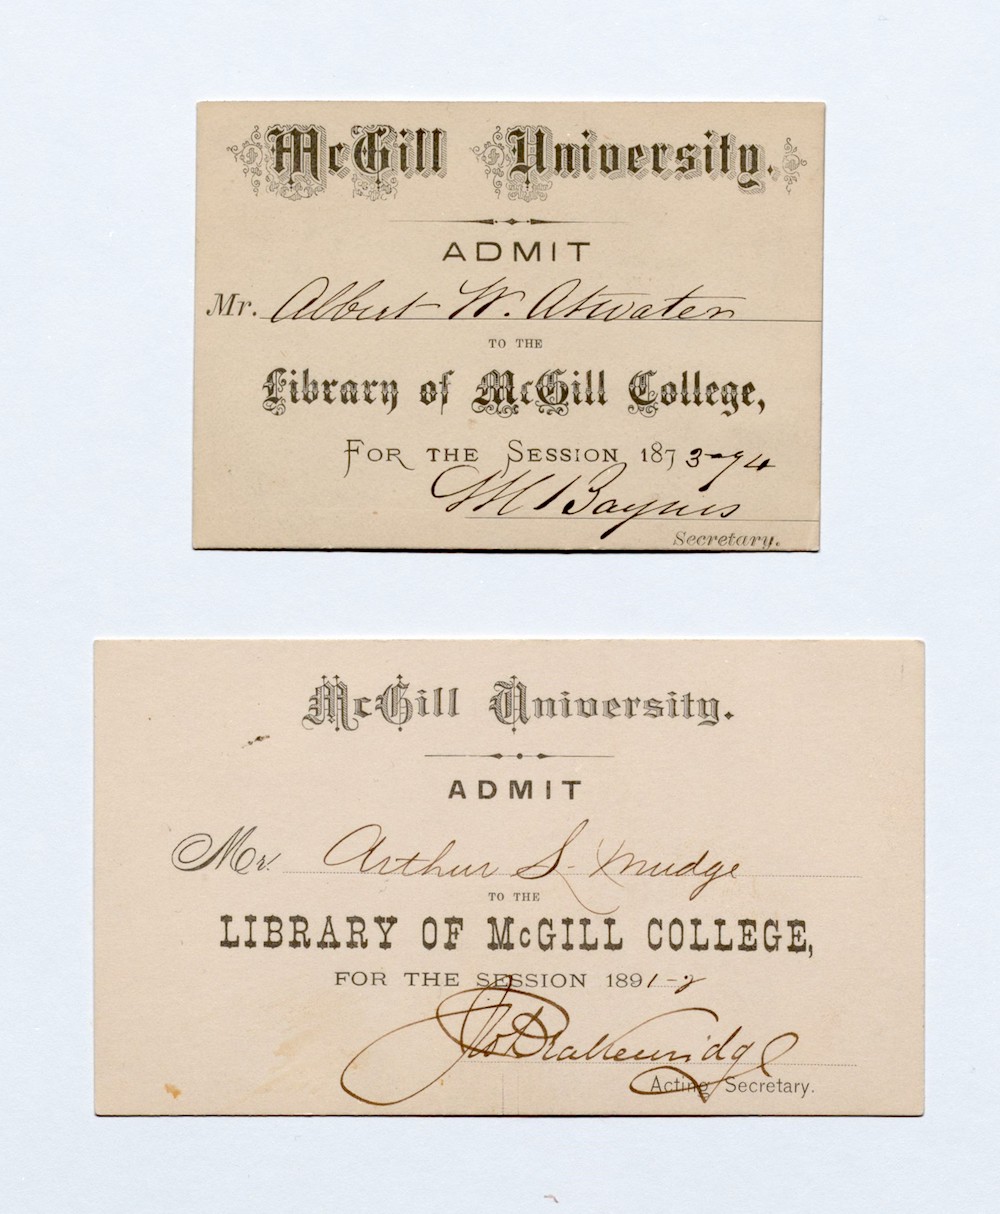 McGill University.
ADMIT
Mr. Albert W. Atwater
TO THE
Library of McGill College,
FOR THE SESSION 1873-74
WM Baynes
Secretary.
McGill University.
ADMIT
Mr. Arthur S. Mudge
TO THE
LIBRARY OF McGILL COLLEGE,
FOR THE SESSION 1891-2
Acting Secretary.